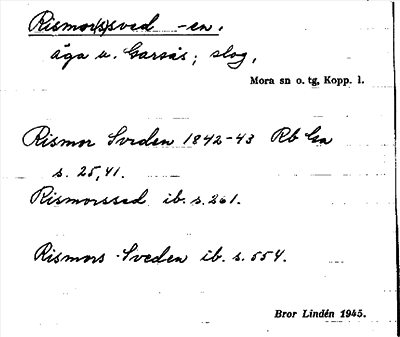 Rismor(s)sved -en,
äga u. Garsås; slog,
Mora sn o. tg, Kopp. l.
Rismor Sveden 1842-43 Rb Ga
s. 25, 41.
Rismorssed ib. s. 261.
Rismors Sveden ib. s. 554.
Bror Lindén 1945.